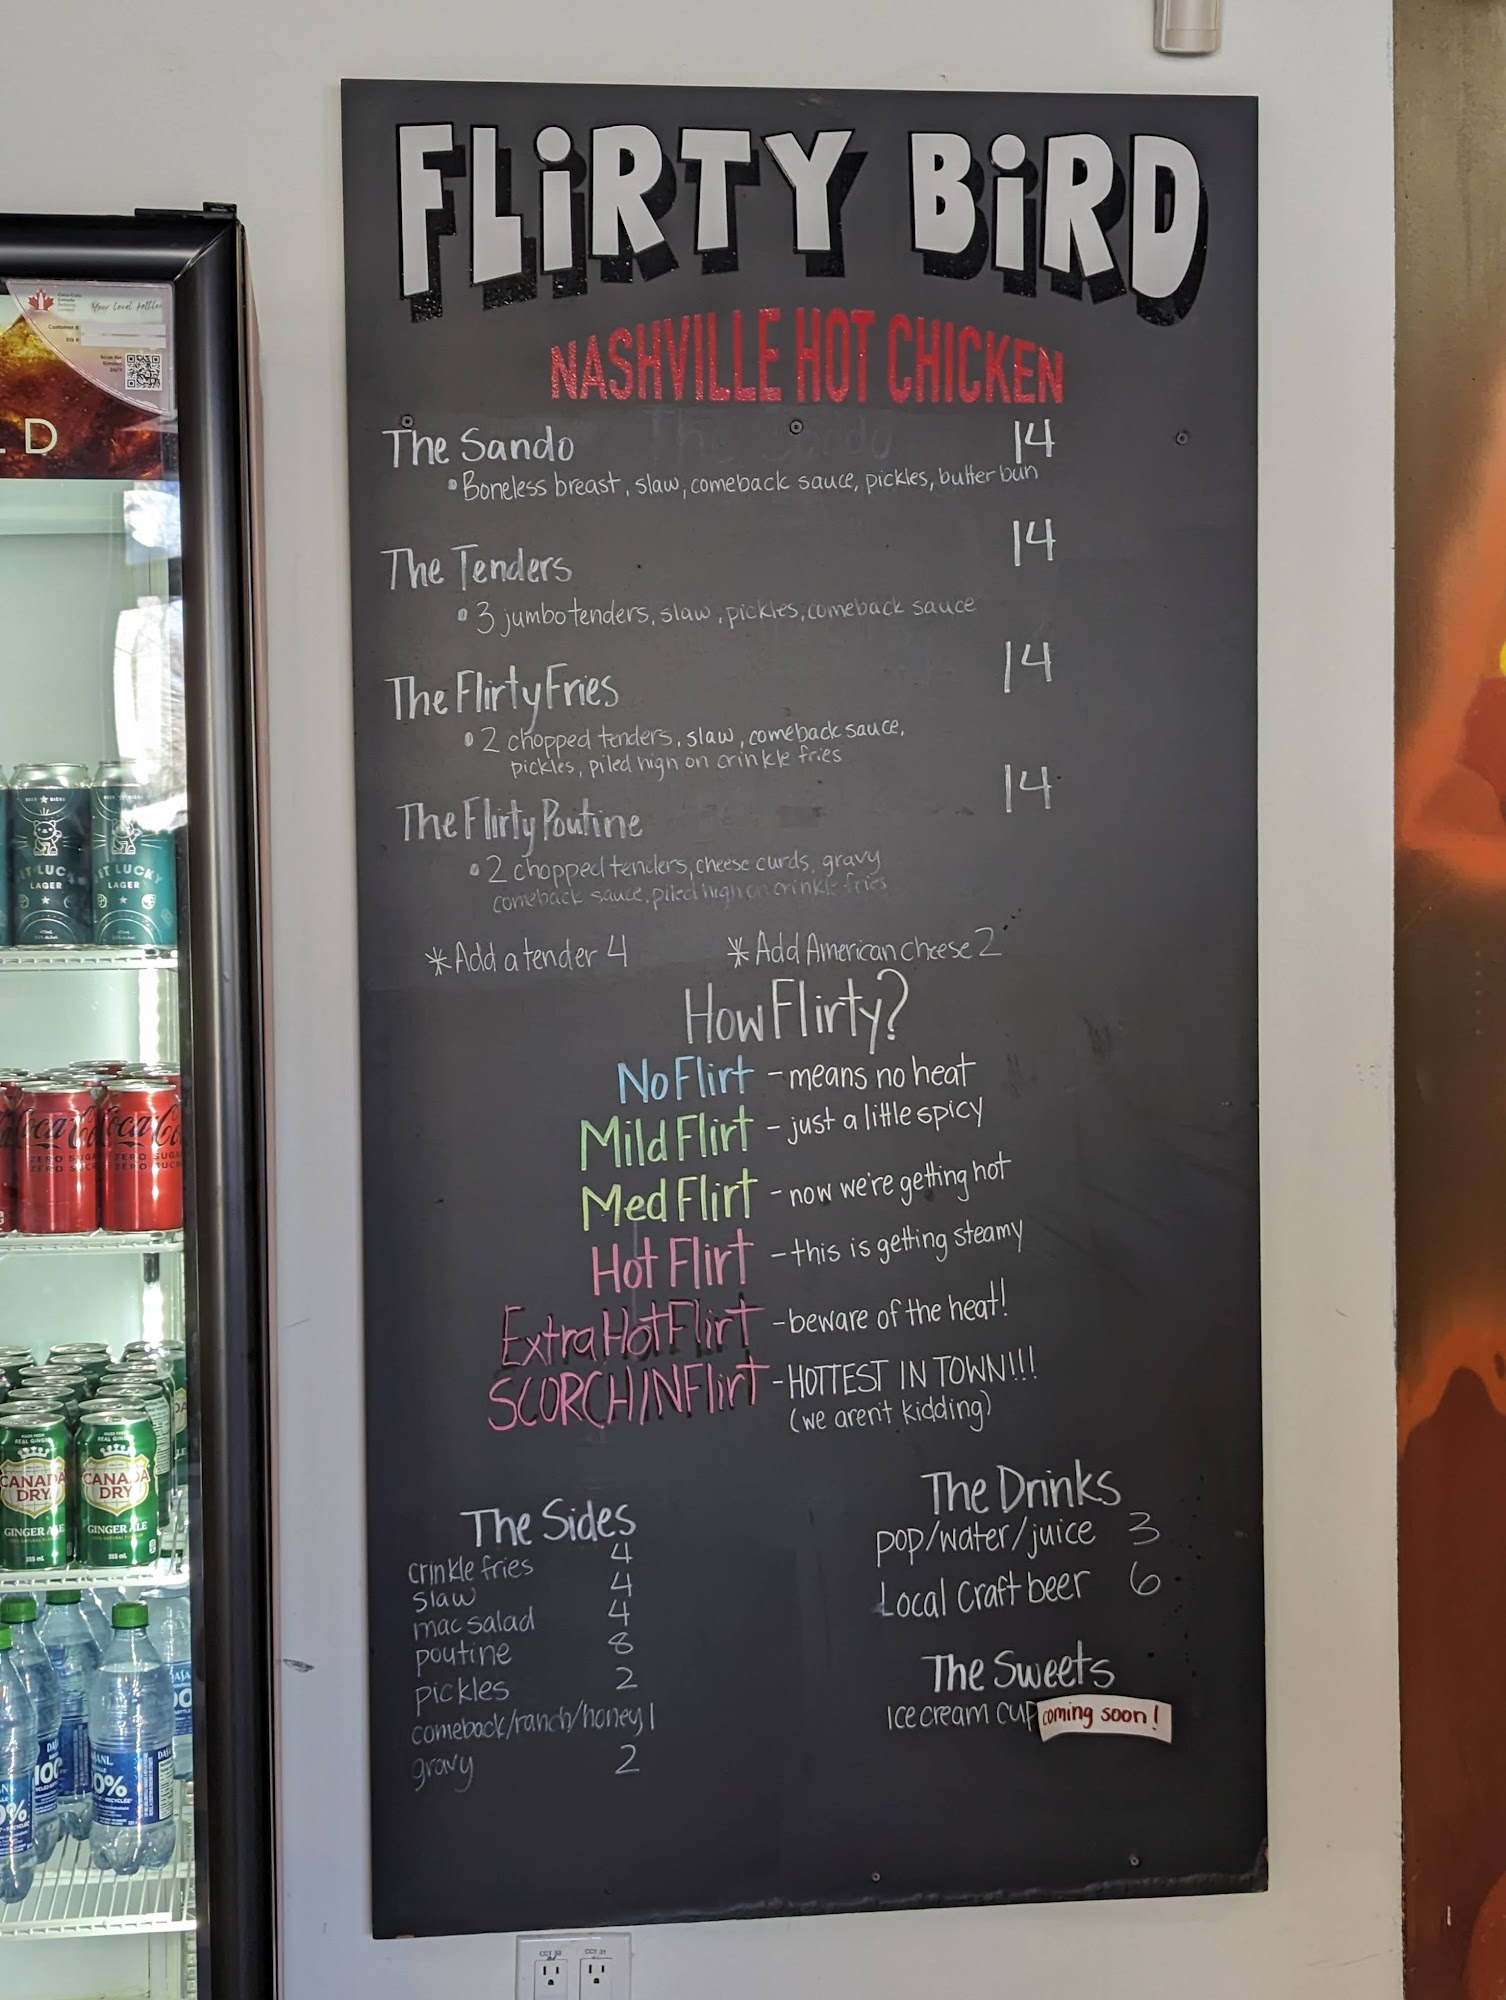 FLiRTY BiRD
NASHVILLE HOT CHICKEN
The Sando 14
• Boneless breast, slaw, comeback sauce, pickles, butter bun
The Tenders 14
• 3 jumbo tenders, slaw, pickles, comeback sauce
The Flirty Fries 14
• 2 chopped tenders, slaw, comeback sauce,
pickles, piled high on crinkle fries
The Flirty Poutine 14
• 2 chopped tenders, cheese curds, gravy
comeback sauce, piled high on crinkle fries
*Add a tender 4 *Add American cheese 2
How Flirty?
No Flirt - means no heat
Mild Flirt - just a little spicy
Med Flirt - now we're getting hot
Hot Flirt - this is getting steamy
Extra Hot Flirt - beware of the heat!
SCORCHIN Flirt - HOTTEST IN TOWN!!!
(we arent kidding)
The Sides
crinkle fries 4
slaw 4
mac salad 4
poutine 8
pickles 2
comeback/ranch/honey 1
gravy 2
The Drinks
pop/water/juice 3
Local Craft beer 6
The Sweets
Ice cream cup coming soon!
Your local bottler
Customer #
LD
LAGER
LAGER
Coca-Cola
ZERO SUGAR
CANADA
DRY
GINGER ALE
355 mL
CANADA
DRY
GINGER ALE
355 mL
DASANI
100%
CCT 33
CCT 31